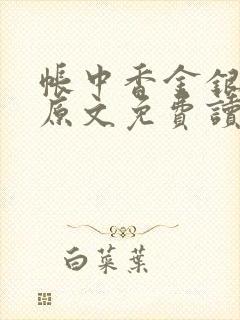 帳中香金銀
原文免費讀
白菜葉